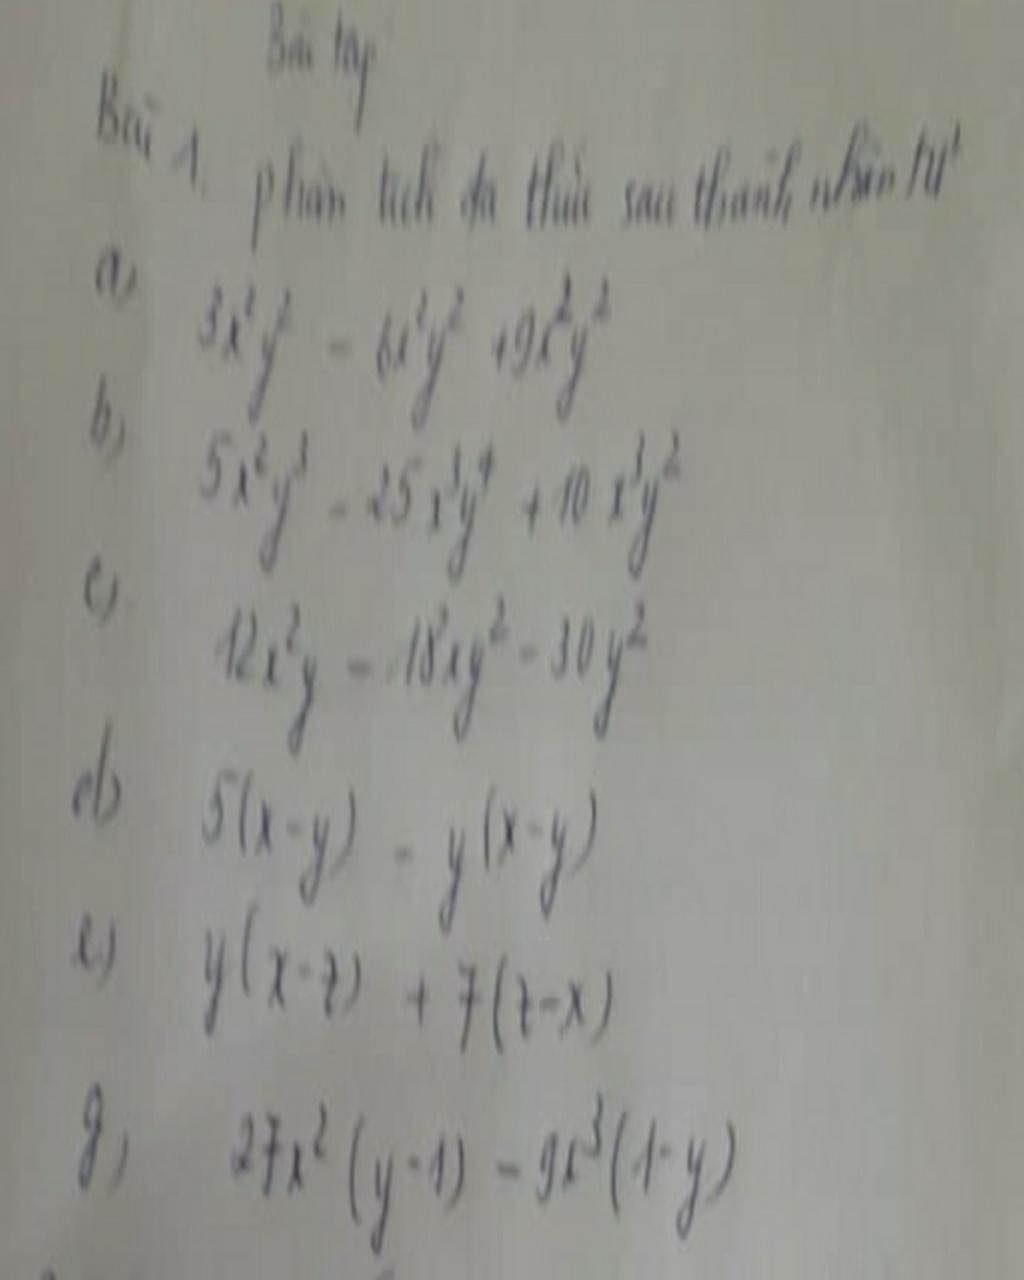 Bài tập
Bài 1. phân tích đa thức sau thành nhân tử
a) 3x²y² - 6x²y² + 9x²y²
b) 5x²y³ - 25x³y⁴ + 10x³y²
c) 12x²y - 18xy² - 30y²
d) 5(x-y) - y(x-y)
e) y(x-z) + 7(z-x)
g) 27x²(y-1) - 9x³(1-y)